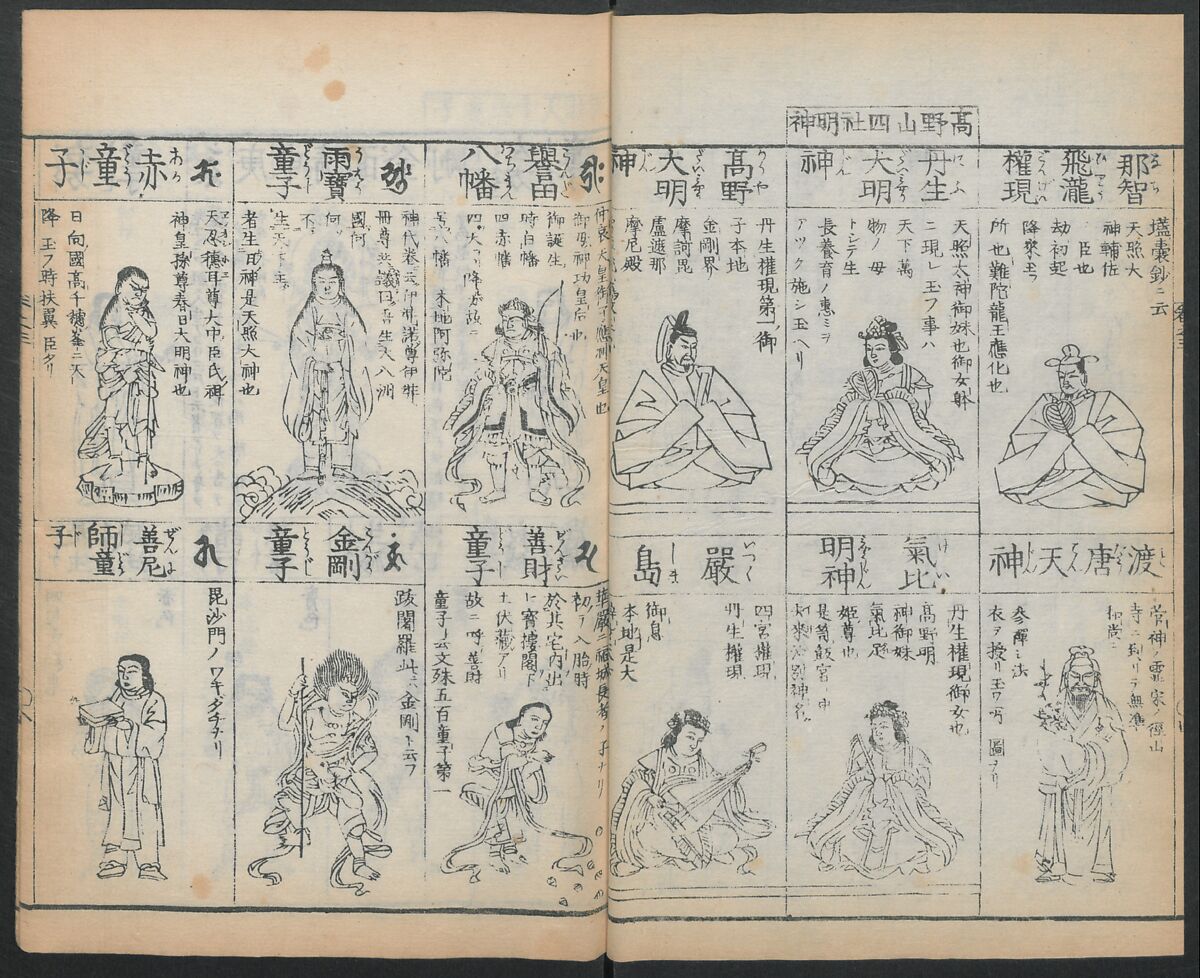 高野山四社明神
那智
飛瀧
權現
𡒉囊鈔ニ云
天照大
神輔佐
ノ臣也
劫初起
降來玉フ
所也難陀龍王應化也
丹生
大明
神
天照太神御妹也御女躰
ニ現レ玉フ事ハ
天下萬
物ノ母
トシテ生
長養育ノ惠ミヲ
アツク施シ玉ヘリ
高野
大明
神
丹生權現第一ノ御
子本地
金剛界
摩訶毘
盧遮那
摩尼殿
渡唐天神
菅神ノ霊宋ノ徑山
寺ニ到リテ無準
和尚ニ
參禪シ法
衣ヲ授リ玉フ
圖ナリ
氣比
明神
丹生權現御女也
高野明
神御妹
氣比
姫尊也
是筍飯宮ノ中
嚴島
四宮權現
丹生權現
御息
本地是大
譽田
八幡
仲哀天皇御子應神天皇也
御母神功皇后也
御誕生
時白幡
四赤幡
四ツ天ヨリ降ル故ニ
号八幡 本地阿弥陀
雨寶
童子
神代卷云伊弉諾尊伊弉
冊尊共議曰吾生大八洲
國何
不
生天下主
者生日神是天照大神也
赤童子
天忍穗耳尊大中臣氏神
神皇孫尊春日大明神也
日向國高千穗峯ニ天
降玉フ時扶翼ノ臣タリ
善財
童子
華嚴ニ福城長者ノ子ナリ
初テ入胎時
於其宅内出
七寶樓閣下
七伏藏アリ
故ニ呼善財
童子ト云文殊五百童子第一
金剛
童子
跋闍羅此ニハ金剛ト云フ
善尼
師童
子
毘沙門ノワキダチナリ